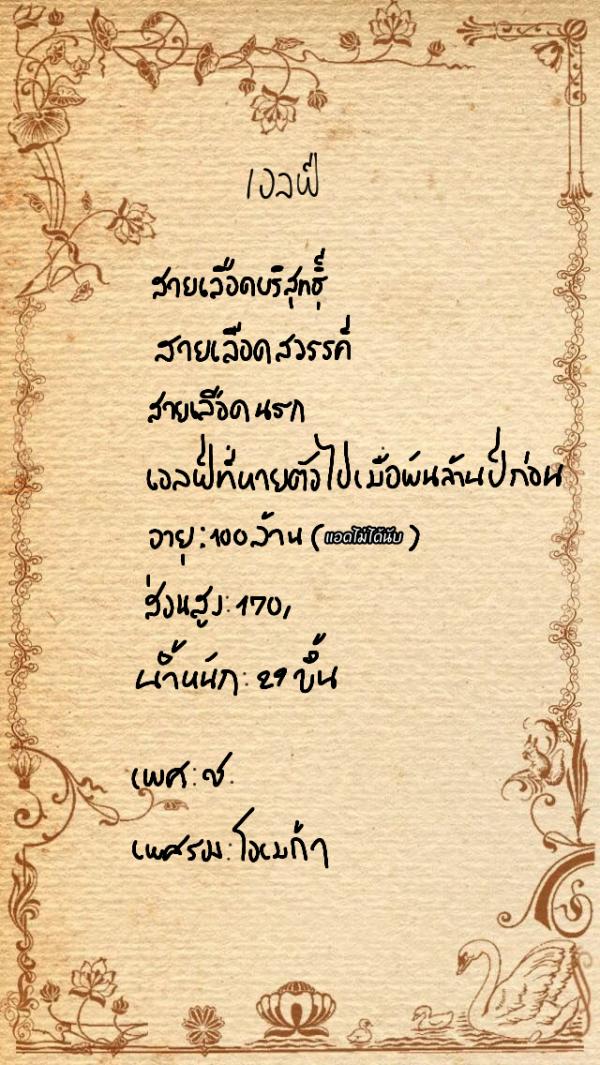 เอลฟ์
สายเลือดบริสุทธิ์
สายเลือดสวรรค์
สายเลือดนรก
เอลฟ์ที่หายตัวไปเมื่อพันล้านปีก่อน
อายุ:100ล้าน (แอดไม่ได้นับ)
ส่วนสูง:170,
น้ำหนัก:29ขึ้น
เพศ:ช.
เพศรอง:โอเมก้า